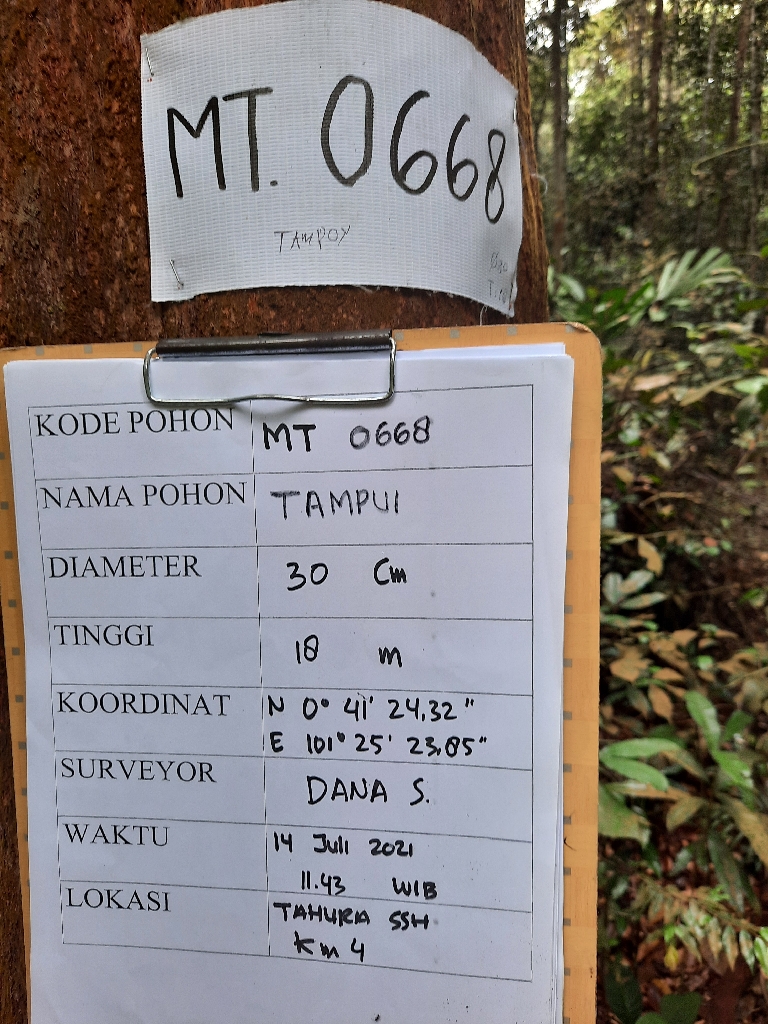 MT. 0668
TAMPOY
KODE POHON MT 0668
NAMA POHON TAMPUI
DIAMETER 30 Cm
TINGGI 18 m
KOORDINAT N 0° 41' 24,32"
E 101° 25' 23,85"
SURVEYOR DANA S.
WAKTU 14 Juli 2021
11.43 WIB
LOKASI TAHURA SSH
Km 4